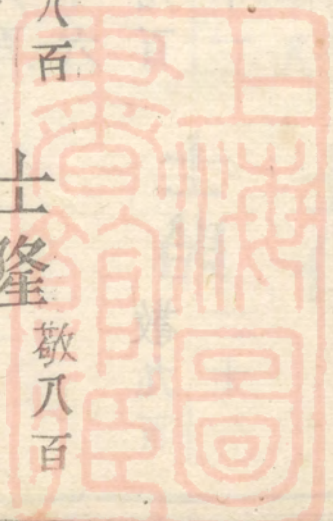 八百
士隆 敬八百
上海圖
書館藏